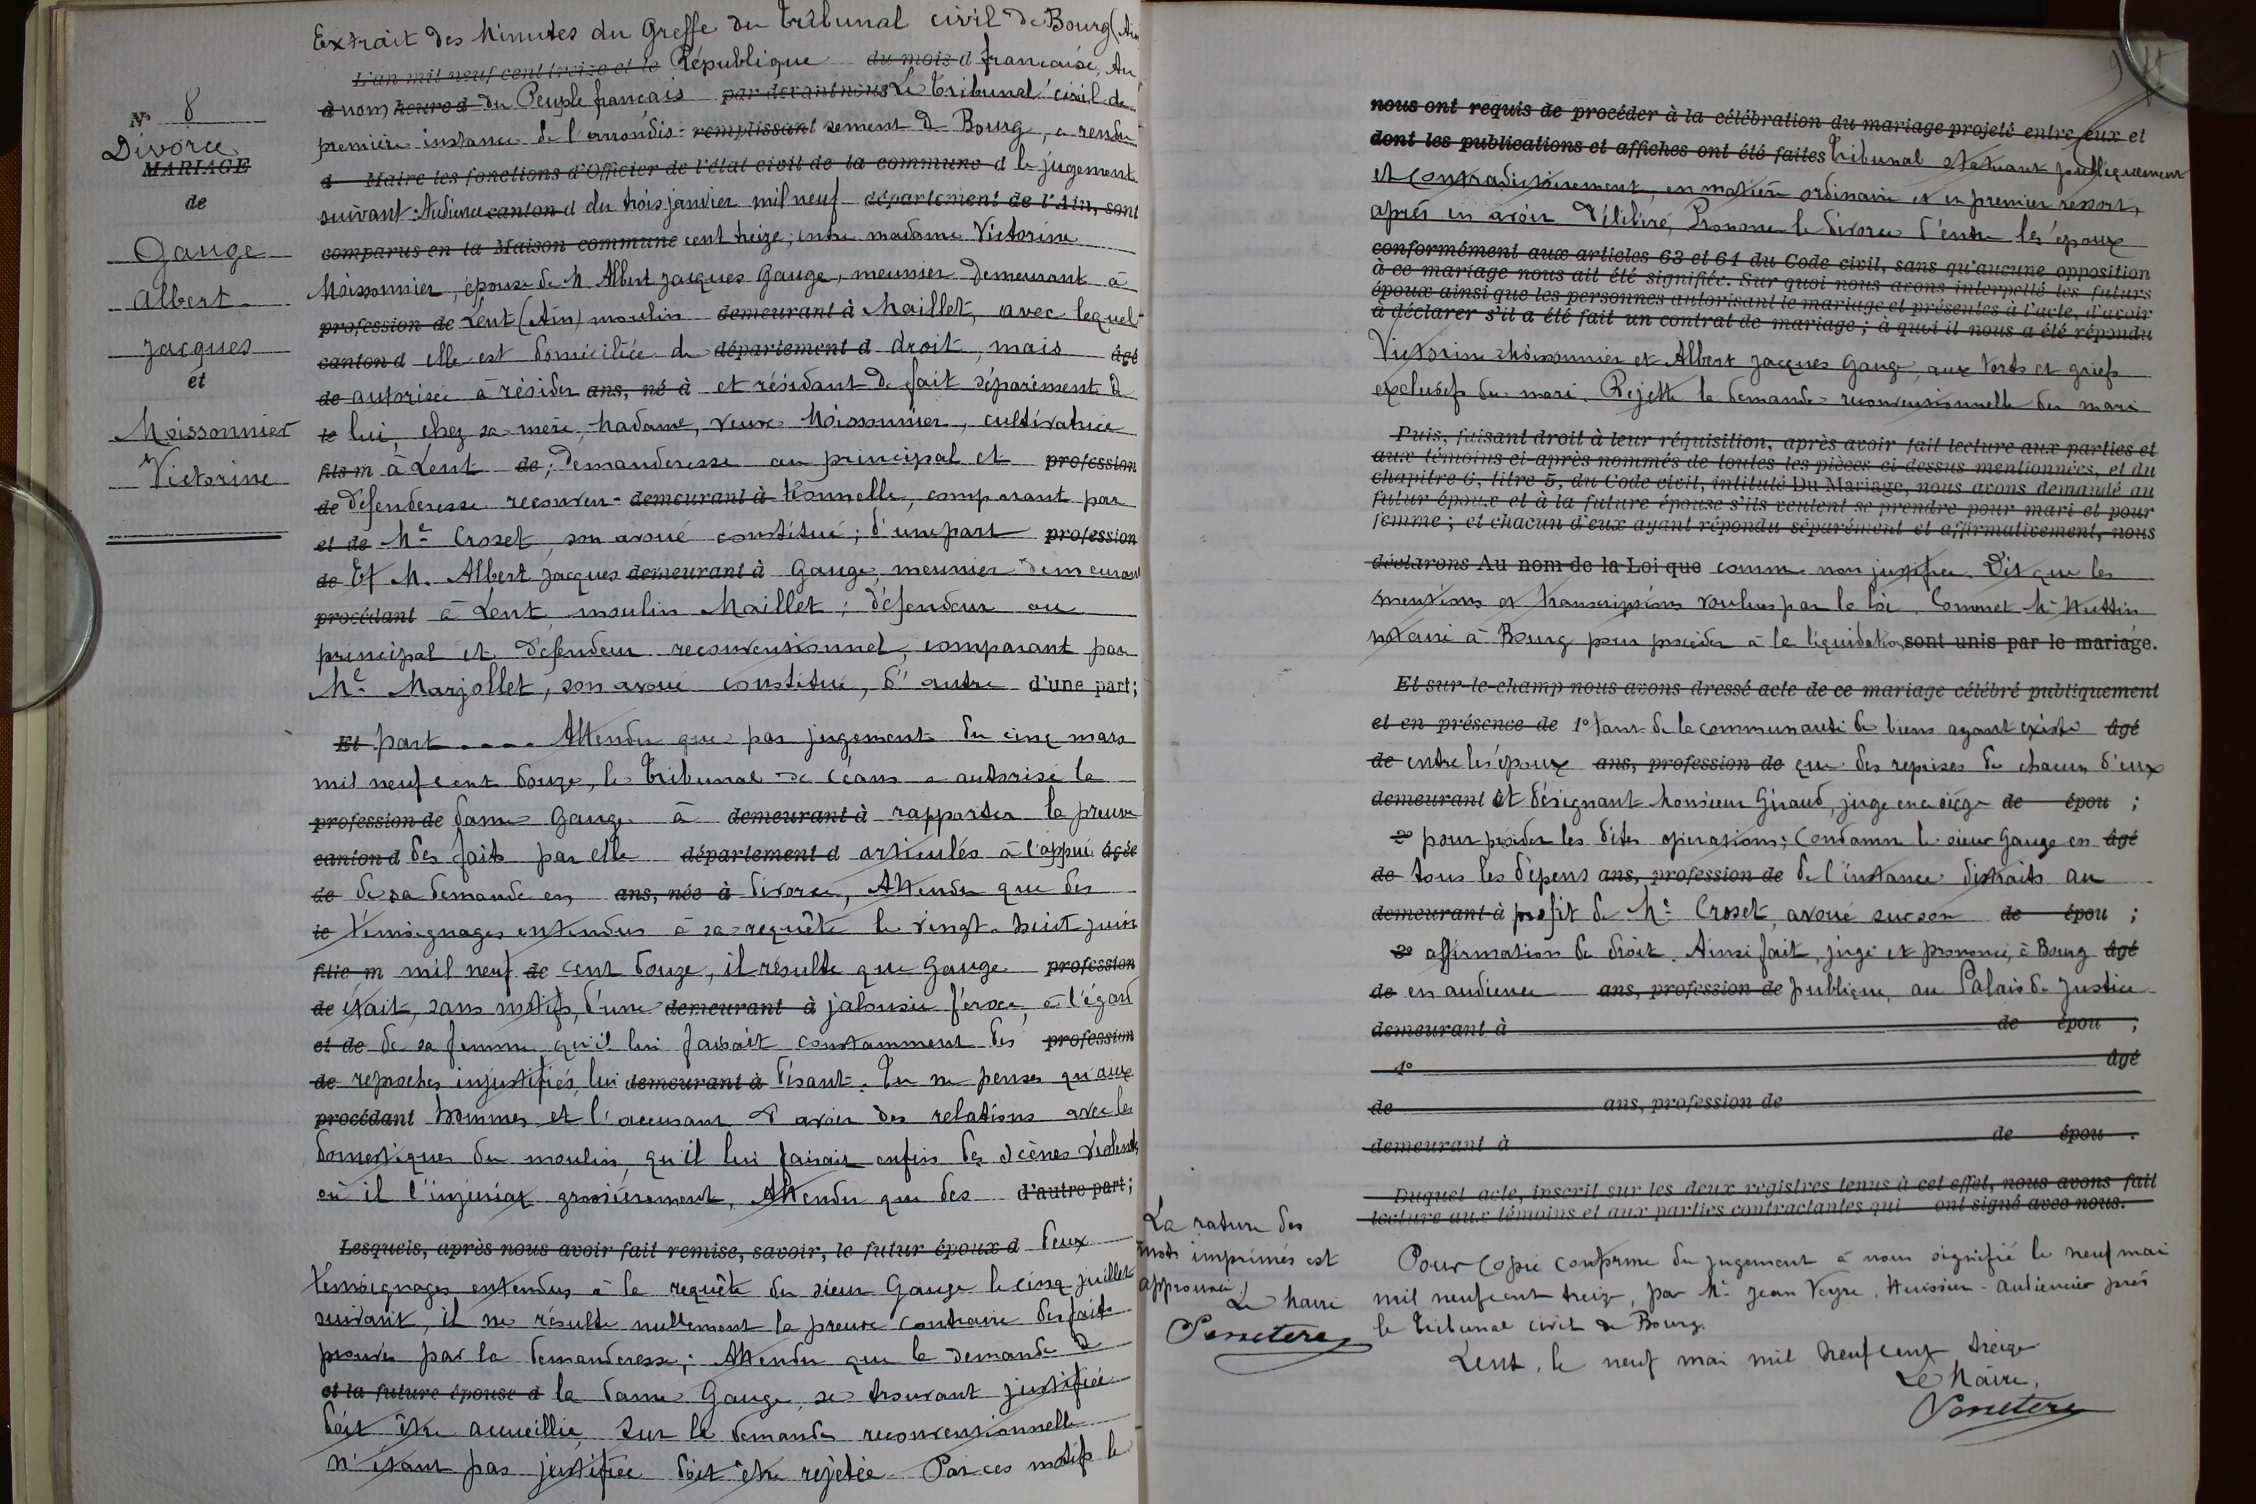 Extrait des Minutes du Greffe du Tribunal civil de Bourg (Ain
L'an mil neuf cent treize et le République du mois d française, Au
à nom heure d du Peuple français par devant nous Le Tribunal civil de
première instance de l'arrondis- remplissant sement de Bourg, a rendu
d Maire les fonctions d'Officier de l'état civil de la commune d le jugement
suivant: Audience canton d du trois janvier mil neuf département de l'Ain, sont
comparus en la Maison commune cent treize; entre madame Victorine
Moissonnier, épouse de M. Albert Jacques Gauge, meunier demeurant à
profession de Lent (Ain) moulin demeurant à Maillet, avec lequel
canton d elle est domiciliée de département d droit, mais âgé
de autorisée à résider ans, né à et résidant de fait séparément de
le lui, chez sa mère, Madame, veuve Moissonnier, cultivatrice
fils m à Lent de; demanderesse au principal et profession
de défenderesse reconven- demeurant à tionnelle, comparant par
et de Me Croset, son avoué constitué; d'une part profession
de Et M. Albert Jacques demeurant à Gauge, meunier demeurant
procédant à Lent, moulin Maillet; défendeur au
principal et défendeur reconventionnel, comparant par
Me Marjollet, son avoué constitué, d'autre d'une part;
Et part .... Attendu que par jugement du cinq mars
mil neuf cent douze, le Tribunal de céans a autorisé la
profession de dame Gauge à demeurant à rapporter la preuve
canton d des faits par elle département d articulés à l'appui âgée
de de sa demande en ans, née à divorce, Attendu que des
le témoignages entendus à sa requête le vingt-huit juin
fille m mil neuf de cent douze, il résulte que Gauge profession
de était, sans motifs, d'une demeurant à jalousie féroce, à l'égard
et de de sa femme qu'il lui faisait constamment des profession
de reproches injustifiés, lui demeurant à disant. Tu ne penses qu'aux
procédant hommes, et l'accusant d'avoir des relations avec les
domestiques du moulin, qu'il lui faisait enfin des scènes violentes
où il l'injuriait grossièrement, Attendu que des d'autre part;
Lesquels, après nous avoir fait remise, savoir, le futur époux d deux
témoignages entendus à la requête du sieur Gauge le cinq juillet
suivant, il ne résulte nullement la preuve contraire des faits
prouvés par la demanderesse; Attendu que la demande de
et la future épouse d la dame Gauge, se trouvant justifiée
doit être accueillie, Sur la demande reconventionnelle
n'étant pas justifiée doit être rejetée. Par ces motifs le
No 8
Divorce
MARIAGE
de
Gauge
Albert
Jacques
et
Moissonnier
Victorine
nous ont requis de procéder à la célébration du mariage projeté entre eux et
dont les publications et affiches ont été faites Tribunal statuant publiquement
et contradictoirement, en matière ordinaire et en premier ressort,
après en avoir délibéré, Prononce le divorce d'entre les époux
conformément aux articles 63 et 64 du Code civil, sans qu'aucune opposition
à ce mariage nous ait été signifiée. Sur quoi nous avons interpellé les futurs
époux ainsi que les personnes autorisant le mariage et présentes à l'acte, d'avoir
à déclarer s'il a été fait un contrat de mariage; à quoi il nous a été répondu
Victorine Moissonnier et Albert Jacques Gauge, aux torts et griefs
exclusifs du mari. Rejette la demande reconventionnelle du mari
Puis, faisant droit à leur réquisition, après avoir fait lecture aux parties et
aux témoins ci-après nommés de toutes les pièces ci-dessus mentionnées, et du
chapitre 6, titre 5, du Code civil, intitulé Du Mariage, nous avons demandé au
futur époux et à la future épouse s'ils veulent se prendre pour mari et pour
femme; et chacun d'eux ayant répondu séparément et affirmativement, nous
déclarons Au nom de la Loi que comme non justifiée. Dit que les
mentions et transcriptions voulues par la loi. Commet Me Huttin
notaire à Bourg pour procéder à la liquidation sont unis par le mariage.
Et sur-le-champ nous avons dressé acte de ce mariage célébré publiquement
et en présence de 1° tant de la communauté de biens ayant existé âgé
de entre les époux ans, profession de que des reprises de chacun d'eux
demeurant Et désignant Monsieur Giraud, juge en ce siège de épou ;
2° pour présider les dites opérations; Condamne le sieur Gauge en âgé
de tous les dépens ans, profession de de l'instance distraits au
demeurant à profit de Me Croset, avoué sur son de épou ;
3° affirmation de droit. Ainsi fait, jugé et prononcé, à Bourg âgé
de en audience ans, profession de publique, au Palais de Justice
demeurant à de épou ;
4° âgé
de ans, profession de
demeurant à de épou .
Duquel acte, inscrit sur les deux registres tenus à cet effet, nous avons fait
lecture aux témoins et aux parties contractantes qui ont signé avec nous.
La rature des
mots imprimés est
approuvée.
Le Maire
Senetere
Pour copie conforme du jugement à nous signifié le neuf mai
mil neuf cent treize, par Me Jean Veyre, Huissier-audiencier près
le Tribunal civil de Bourg.
Lent, le neuf mai mil neuf cent treize
Le Maire,
Senetere